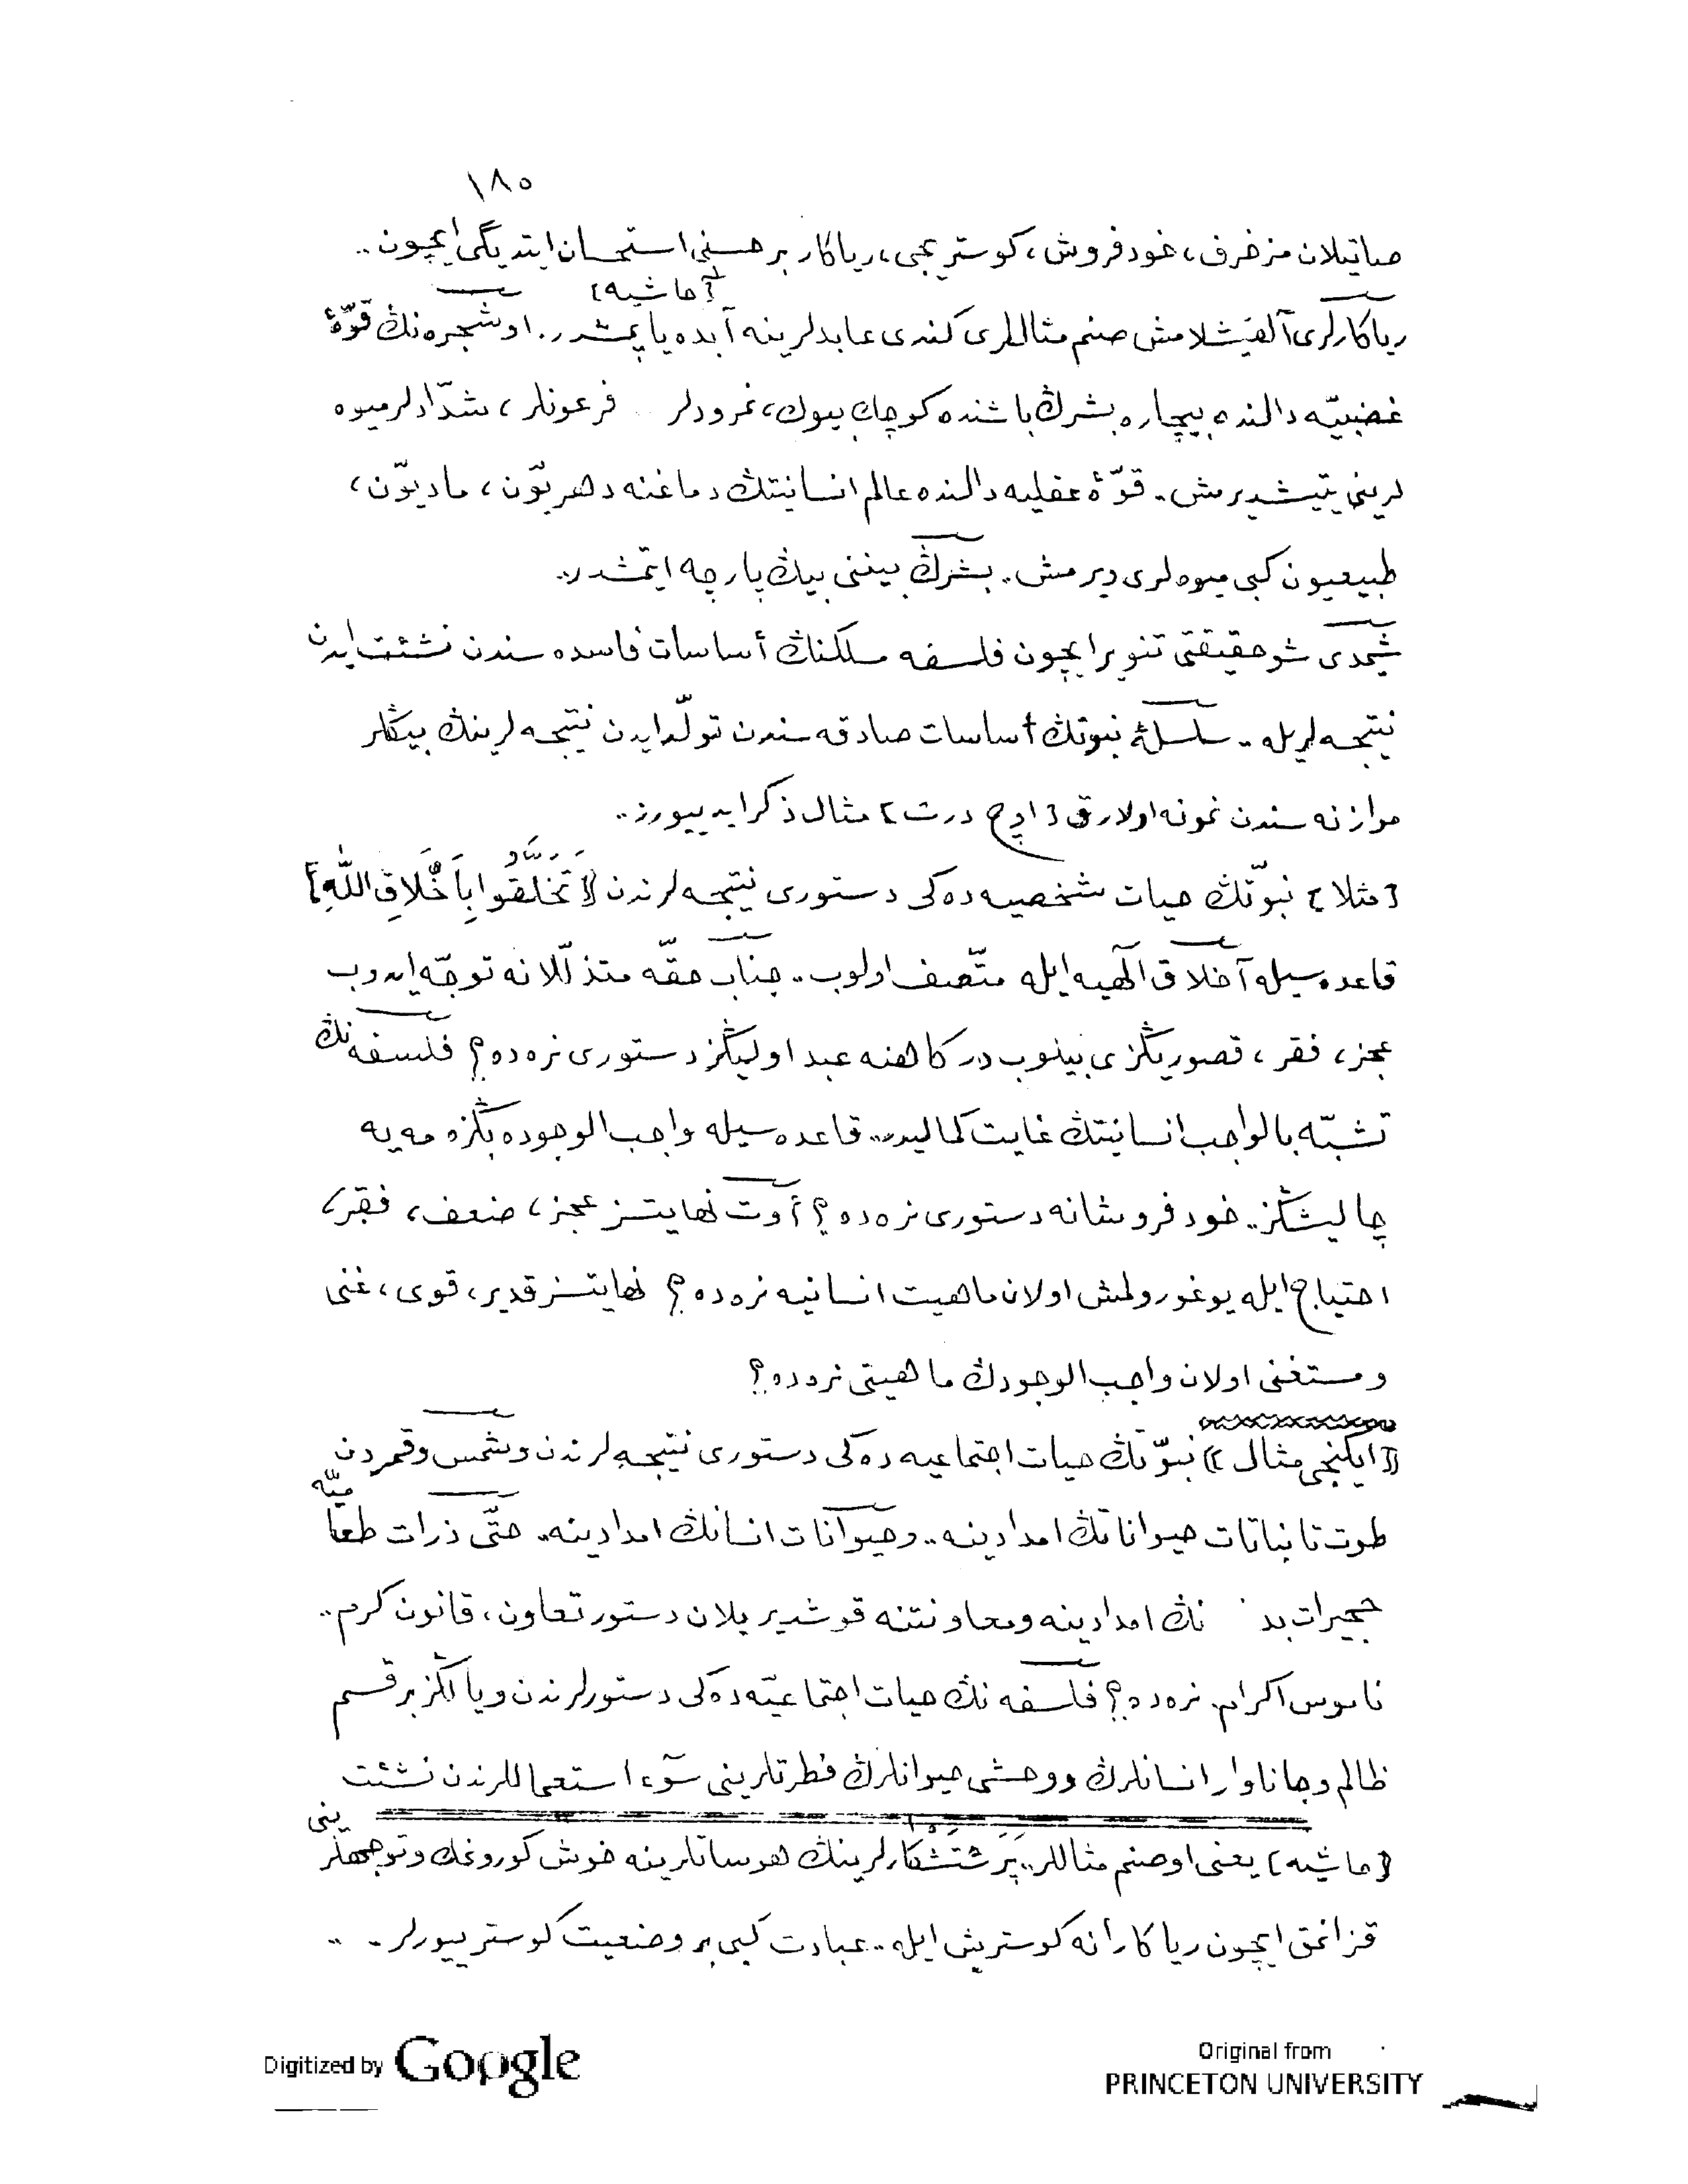 ١٨٥
صاتيلان مزخرف، خودفروش، كوستریجی، ریاكار بر حسنی استحسان ایتدیگی ایچون..
[حاشیه]
ریاكارلری آلقیشلامش صنم مثاللری كندی عابدلرینه آبده یاپمشدر.. او شجره‌نڭ قوّۀ
غضبیّه دالنده بیچاره بشرڭ باشنده كوچك بیوك، نمرودلر فرعونلر، شدّادلر میوه
لرینی یتیشدیرمش.. قوّۀ عقلیه دالنده عالم انسانیتڭ دماغنه دهریّون، مادیّون،
طبیعیون كبی میوه‌لری ویرمش.. بشرڭ بیننی بیڭ پارچه ایتمشدر..
شیمدی شو حقیقتی تنویر ایچون فلسفه مسلكنڭ أساسات فاسده‌سندن نشئت ایدن
نتیجه‌لریله.. سلسلۀ نبوتڭ أساسات صادقه‌سندن تولّد ایدن نتیجه‌لرینڭ بیڭلر
موازنه‌سندن نمونه اولارق [اوچ درت] مثال ذكر ایدییورز..
[مثلا] نبوّتڭ حیات شخصیه‌ده‌كی دستوری نتیجه‌لرندن [تَخَلَّقُوا بِاَخْلَاقِ اللّٰهِ]
قاعده‌سیله آخلاق الٓهیه ایله متّصف اولوب.. جناب حقّه متذلّلانه توجّه ایدوب
عجز، فقر، قصوریڭزی بیلوب درگاهنه عبد اولیڭز دستوری نره‌ده؟ فلسفه‌نڭ
تشبّه بالواجب انسانیتڭ غایت كمالیدر.. قاعده‌سیله واجب الوجوده بڭزه‌مه‌یه
چالیشڭز.. خودفروشانه دستوری نره‌ده؟ أوت نهایتسز عجز، ضعف، فقر،
احتیاج ایله یوغورولمش اولان ماهیت انسانیه نره‌ده؟ نهایتسز قدیر، قوی، غنی
و مستغنی اولان واجب الوجودڭ ماهیتی نره‌ده؟
[ایكنجی مثال] نبوّتڭ حیات اجتماعیه‌ده‌كی دستوری نتیجه‌لرندن و شمس و قمردن
طوت تا نباتات حیواناتڭ امدادینه.. و حیوانات انسانڭ امدادینه.. حتّی ذرات طعامیّه
حجیرات بد نڭ امدادینه و معاونتنه قوشدیریلان دستور تعاون، قانون كرم..
ناموس اكرام نره‌ده؟ فلسفه‌نڭ حیات اجتماعیّه‌ده‌كی دستورلرندن و یالڭز بر قسم
ظالم و جاناوار انسانلرڭ و وحشی حیوانلرڭ فطرتلرینی سوٓء استعماللرندن نشئت
[حاشیه] یعنی او صنم مثاللر.. پَرَسْتِشْكَارلرینڭ هوساتلرینه خوش كورونمك و توجهلرینی
قزانمق ایچون ریاكارانه كوستریش ایله.. عبادت كبی بر وضعیت كوستریيورلر..
Digitized by Google
Original from
PRINCETON UNIVERSITY